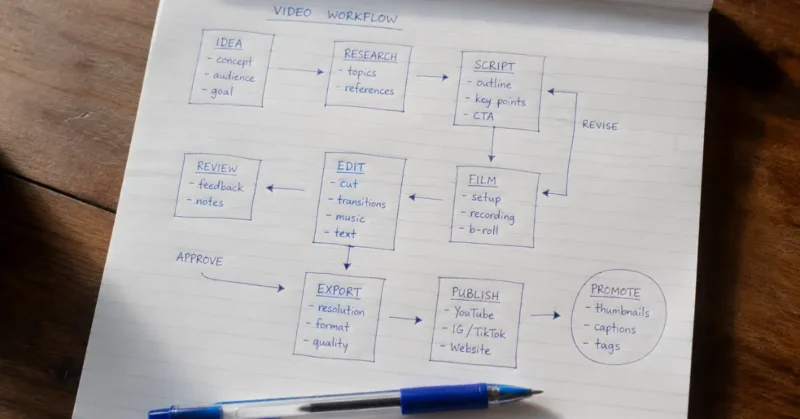 VIDEO WORKFLOW
IDEA
- concept
- audience
- goal
RESEARCH
- topics
- references
SCRIPT
- outline
- key points
- CTA
REVISE
REVIEW
- feedback
- notes
EDIT
- cut
- transitions
- music
- text
FILM
- setup
- recording
- b-roll
APPROVE
EXPORT
- resolution
- format
- quality
PUBLISH
- YouTube
- IG / TikTok
- Website
PROMOTE
- thumbnails
- captions
- tags